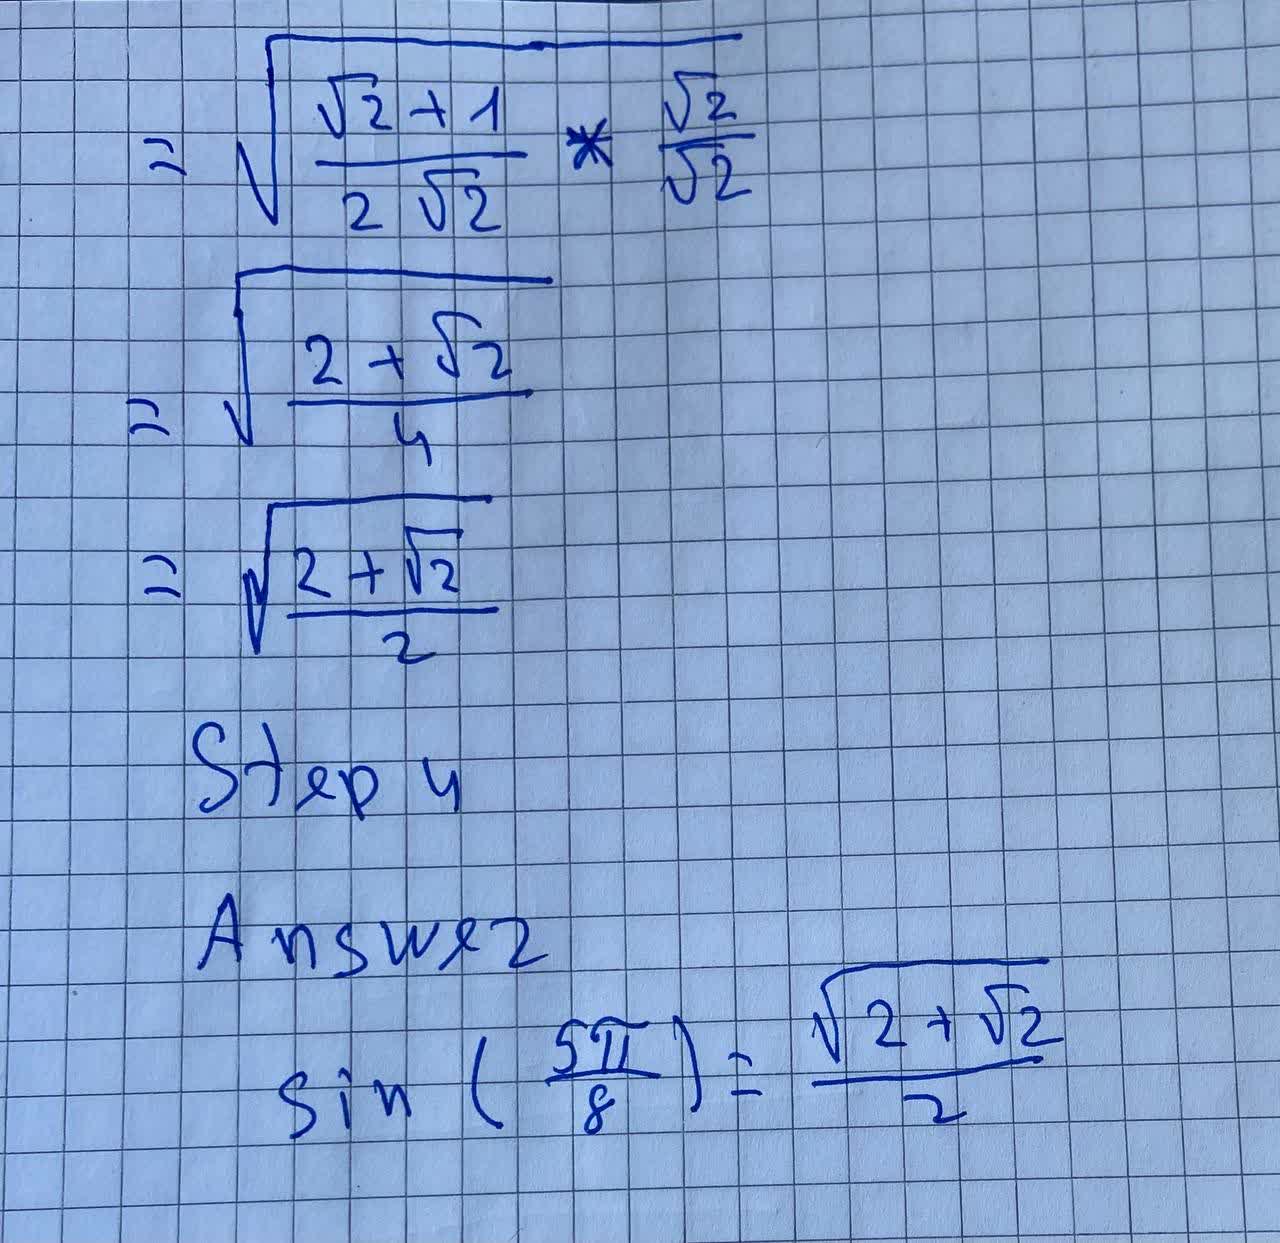 = √((√2 + 1)/(2 √2) * √2/√2)
= √((2 + √2)/4)
= √(2 + √2)/2
Step 4
Answer
sin (5π/8) = √(2 + √2)/2